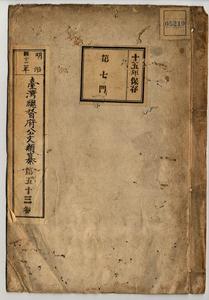 05219
十五年保存
第七門
明治
四十二年
臺灣總督府公文類纂 第五十三卷